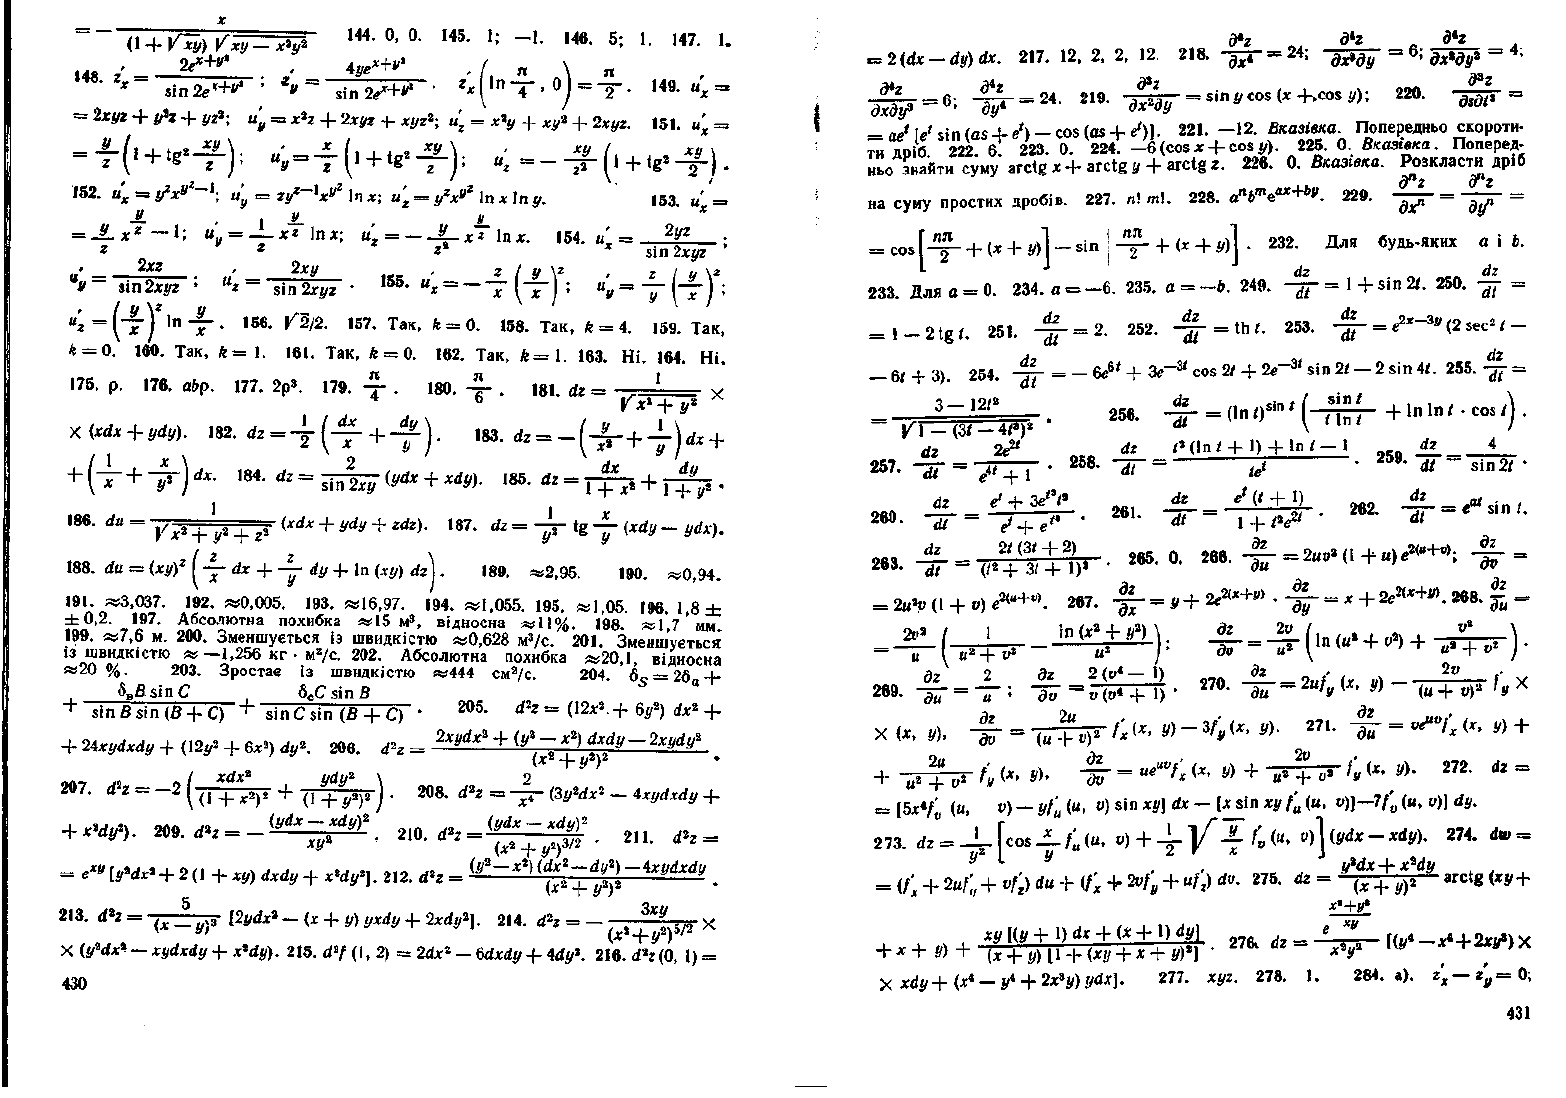 = − x / ((1 + √xy) √(xy − x²y²))   144. 0, 0.  145. 1; −1.  146. 5; 1.  147. 1.
148. z′ₓ = 2e^(x+y²) / sin 2e^(x+y²); z′_y = 4ye^(x+y²) / sin 2e^(x+y²). z′ₓ(ln π/4, 0) = π/2.  149. u′ₓ =
= 2xyz + y²z + yz²; u′_y = x²z + 2xyz + xyz²; u′_z = x²y + xy² + 2xyz.  151. u′ₓ =
= y/z (1 + tg² xy/z); u′_y = x/z (1 + tg² xy/z); u′_z = − xy/z² (1 + tg² xy/z).
152. u′ₓ = y^z x^(y^z−1); u′_y = zy^(z−1) x^(y^z) ln x; u′_z = y^z x^(y^z) ln x ln y.  153. u′ₓ =
= y/z x^(y/z) − 1; u′_y = 1/z x^(y/z) ln x; u′_z = − y/z² x^(y/z) ln x.  154. u′ₓ = 2yz / sin 2xyz;
u′_y = 2xz / sin 2xyz; u′_z = 2xy / sin 2xyz.  155. u′ₓ = − z/x (y/x)^z; u′_y = z/y (y/x)^z;
u′_z = (y/x)^z ln y/x.  156. √2/2.  157. Так, k = 0.  158. Так, k = 4.  159. Так,
k = 0.  160. Так, k = 1.  161. Так, k = 0.  162. Так, k = 1.  163. Ні.  164. Ні.
175. p.  176. abp.  177. 2p³.  179. π/4.  180. π/6.  181. dz = 1/√(x² + y²) ×
× (xdx + ydy).  182. dz = 1/2 (dx/x + dy/y).  183. dz = −(y/x² + 1/y) dx +
+ (1/x + x/y²) dx.  184. dz = 2/sin 2xy (ydx + xdy).  185. dz = dx/(1 + x²) + dy/(1 + y²).
186. du = 1/√(x² + y² + z²) (xdx + ydy + zdz).  187. dz = 1/y² tg x/y (xdy − ydx).
188. du = (xy)^z (z/x dx + z/y dy + ln (xy) dz).  189. ≈2,95.  190. ≈0,94.
191. ≈3,037.  192. ≈0,005.  193. ≈16,97.  194. ≈1,055.  195. ≈1,05.  196. 1,8 ±
± 0,2.  197. Абсолютна похибка ≈15 м³, відносна ≈11%.  198. ≈1,7 мм.
199. ≈7,6 м.  200. Зменшується із швидкістю ≈0,628 м³/с.  201. Зменшується
із швидкістю ≈ −1,256 кг · м²/с.  202. Абсолютна похибка ≈20,1, відносна
≈20 %.  203. Зростає із швидкістю ≈444 см²/с.  204. δ_S = 2δ_a +
+ δ_B B sin C / (sin B sin (B + C)) + δ_C C sin B / (sin C sin (B + C)).  205. d²z = (12x² + 6y²) dx² +
+ 24xydxdy + (12y² + 6x²) dy².  206. d²z = (2xydx² + (y² − x²) dxdy − 2xydy²) / (x² + y²)².
207. d²z = −2 (xdx²/(1 + x²)² + ydy²/(1 + y²)²).  208. d²z = 2/x⁴ (3y²dx² − 4xydxdy +
+ x²dy²).  209. d²z = − (ydx − xdy)²/xy².  210. d²z = (ydx − xdy)²/(x² + y²)^(3/2).  211. d²z =
= e^(xy) [y²dx² + 2 (1 + xy) dxdy + x²dy²].  212. d²z = ((y² − x²) (dx² − dy²) − 4xydxdy) / (x² + y²)².
213. d²z = 5/(x − y)³ [2ydx² − (x + y) yxdy + 2xdy²].  214. d²z = − 3xy/(x² + y²)^(5/2) ×
× (y²dx² − xydxdy + x²dy).  215. d²f (1, 2) = 2dx² − 6dxdy + 4dy².  216. d²z (0, 1) =
430
= 2 (dx − dy) dx.  217. 12, 2, 2, 12.  218. ∂⁴z/∂x⁴ = 24; ∂⁴z/∂x³∂y = 6; ∂⁴z/∂x²∂y² = 4;
∂⁴z/∂x∂y³ = 6; ∂⁴z/∂y⁴ = 24.  219. ∂³z/∂x²∂y = sin y cos (x + cos y);  220. ∂³z/∂s∂t² =
= ae^t [e^t sin (as + e^t) − cos (as + e^t)].  221. −12. Вказівка. Попередньо скороти-
ти дріб.  222. 6.  223. 0.  224. −6 (cos x + cos y).  225. 0. Вказівка. Поперед-
ньо знайти суму arctg x + arctg y + arctg z.  226. 0. Вказівка. Розкласти дріб
на суму простих дробів.  227. n! m!.  228. aⁿbᵐe^(ax+by).  229. ∂ⁿz/∂xⁿ = ∂ⁿz/∂yⁿ =
= cos [nπ/2 + (x + y)] − sin [nπ/2 + (x + y)].  232. Для будь-яких a і b.
233. Для a = 0.  234. a = −6.  235. a = −b.  249. dz/dt = 1 + sin 2t.  250. dz/dt =
= 1 − 2 tg t.  251. dz/dt = 2.  252. dz/dt = th t.  253. dz/dt = e^(2x−3y) (2 sec² t −
− 6t + 3).  254. dz/dt = − 6e^(6t) + 3e^(−3t) cos 2t + 2e^(−3t) sin 2t − 2 sin 4t.  255. dz/dt =
= (3 − 12t²)/√(1 − (3t − 4t³)²).  256. dz/dt = (ln t)^(sin t) (sin t/(t ln t) + ln ln t · cos t).
257. dz/dt = 2e^(2t)/(e^(4t) + 1).  258. dz/dt = (t² (ln t + 1) + ln t − 1)/(te^t).  259. dz/dt = 4/sin 2t.
260. dz/dt = (e^t + 3e^(t³)t²)/(e^t + e^(t³)).  261. dz/dt = e^t (t + 1)/(1 + t²e^(2t)).  262. dz/dt = e^(at) sin t.
263. dz/dt = 2t (3t + 2)/(t² + 3t + 1)².  265. 0.  266. ∂z/∂u = 2uv² (1 + u) e^(2(u+v)); ∂z/∂v =
= 2u²v (1 + v) e^(2(u+v)).  267. ∂z/∂x = y + 2e^(2(x+y)). ∂z/∂y = x + 2e^(2(x+y)).  268. ∂z/∂u =
= 2v²/u (1/(u² + v²) − ln (x² + y²)/u²); ∂z/∂v = 2v/u² (ln (u² + v²) + v²/(u² + v²)).
269. ∂z/∂u = 2/u; ∂z/∂v = 2 (v⁴ − 1)/(v (v⁴ + 1)).  270. ∂z/∂u = 2uf′_y (x, y) − 2v/(u + v)² f′_y ×
× (x, y), ∂z/∂v = 2u/(u + v)² f′ₓ (x, y) − 3f′_y (x, y).  271. ∂z/∂u = ve^(uv)f′ₓ (x, y) +
+ 2u/(u² + v²) f′_y (x, y), ∂z/∂v = ue^(uv)f′ₓ (x, y) + 2v/(u² + v²) f′_y (x, y).  272. dz =
= [5x⁴f′_v (u, v) − yf′_u (u, v) sin xy] dx − [x sin xy f′_u (u, v)] − 7f′_v (u, v)] dy.
273. dz = 1/y² [cos x/y f′_u (u, v) + 1/2 √(y/x) f′_v (u, v)] (ydx − xdy).  274. dw =
= (f′ₓ + 2uf′_y + vf′_z) du + (f′ₓ + 2vf′_y + uf′_z) dv.  275. dz = (y²dx + x²dy)/(x + y)² arctg (xy +
+ x + y) + xy [(y + 1) dx + (x + 1) dy]/((x + y) [1 + (xy + x + y)²]).  276. dz = e^((x²+y²)/xy)/(x²y²) [(y⁴ − x⁴ + 2xy³) ×
× xdy + (x⁴ − y⁴ + 2x³y) ydx].  277. xyz.  278. 1.  284. а). z′ₓ − z′_y = 0;
431